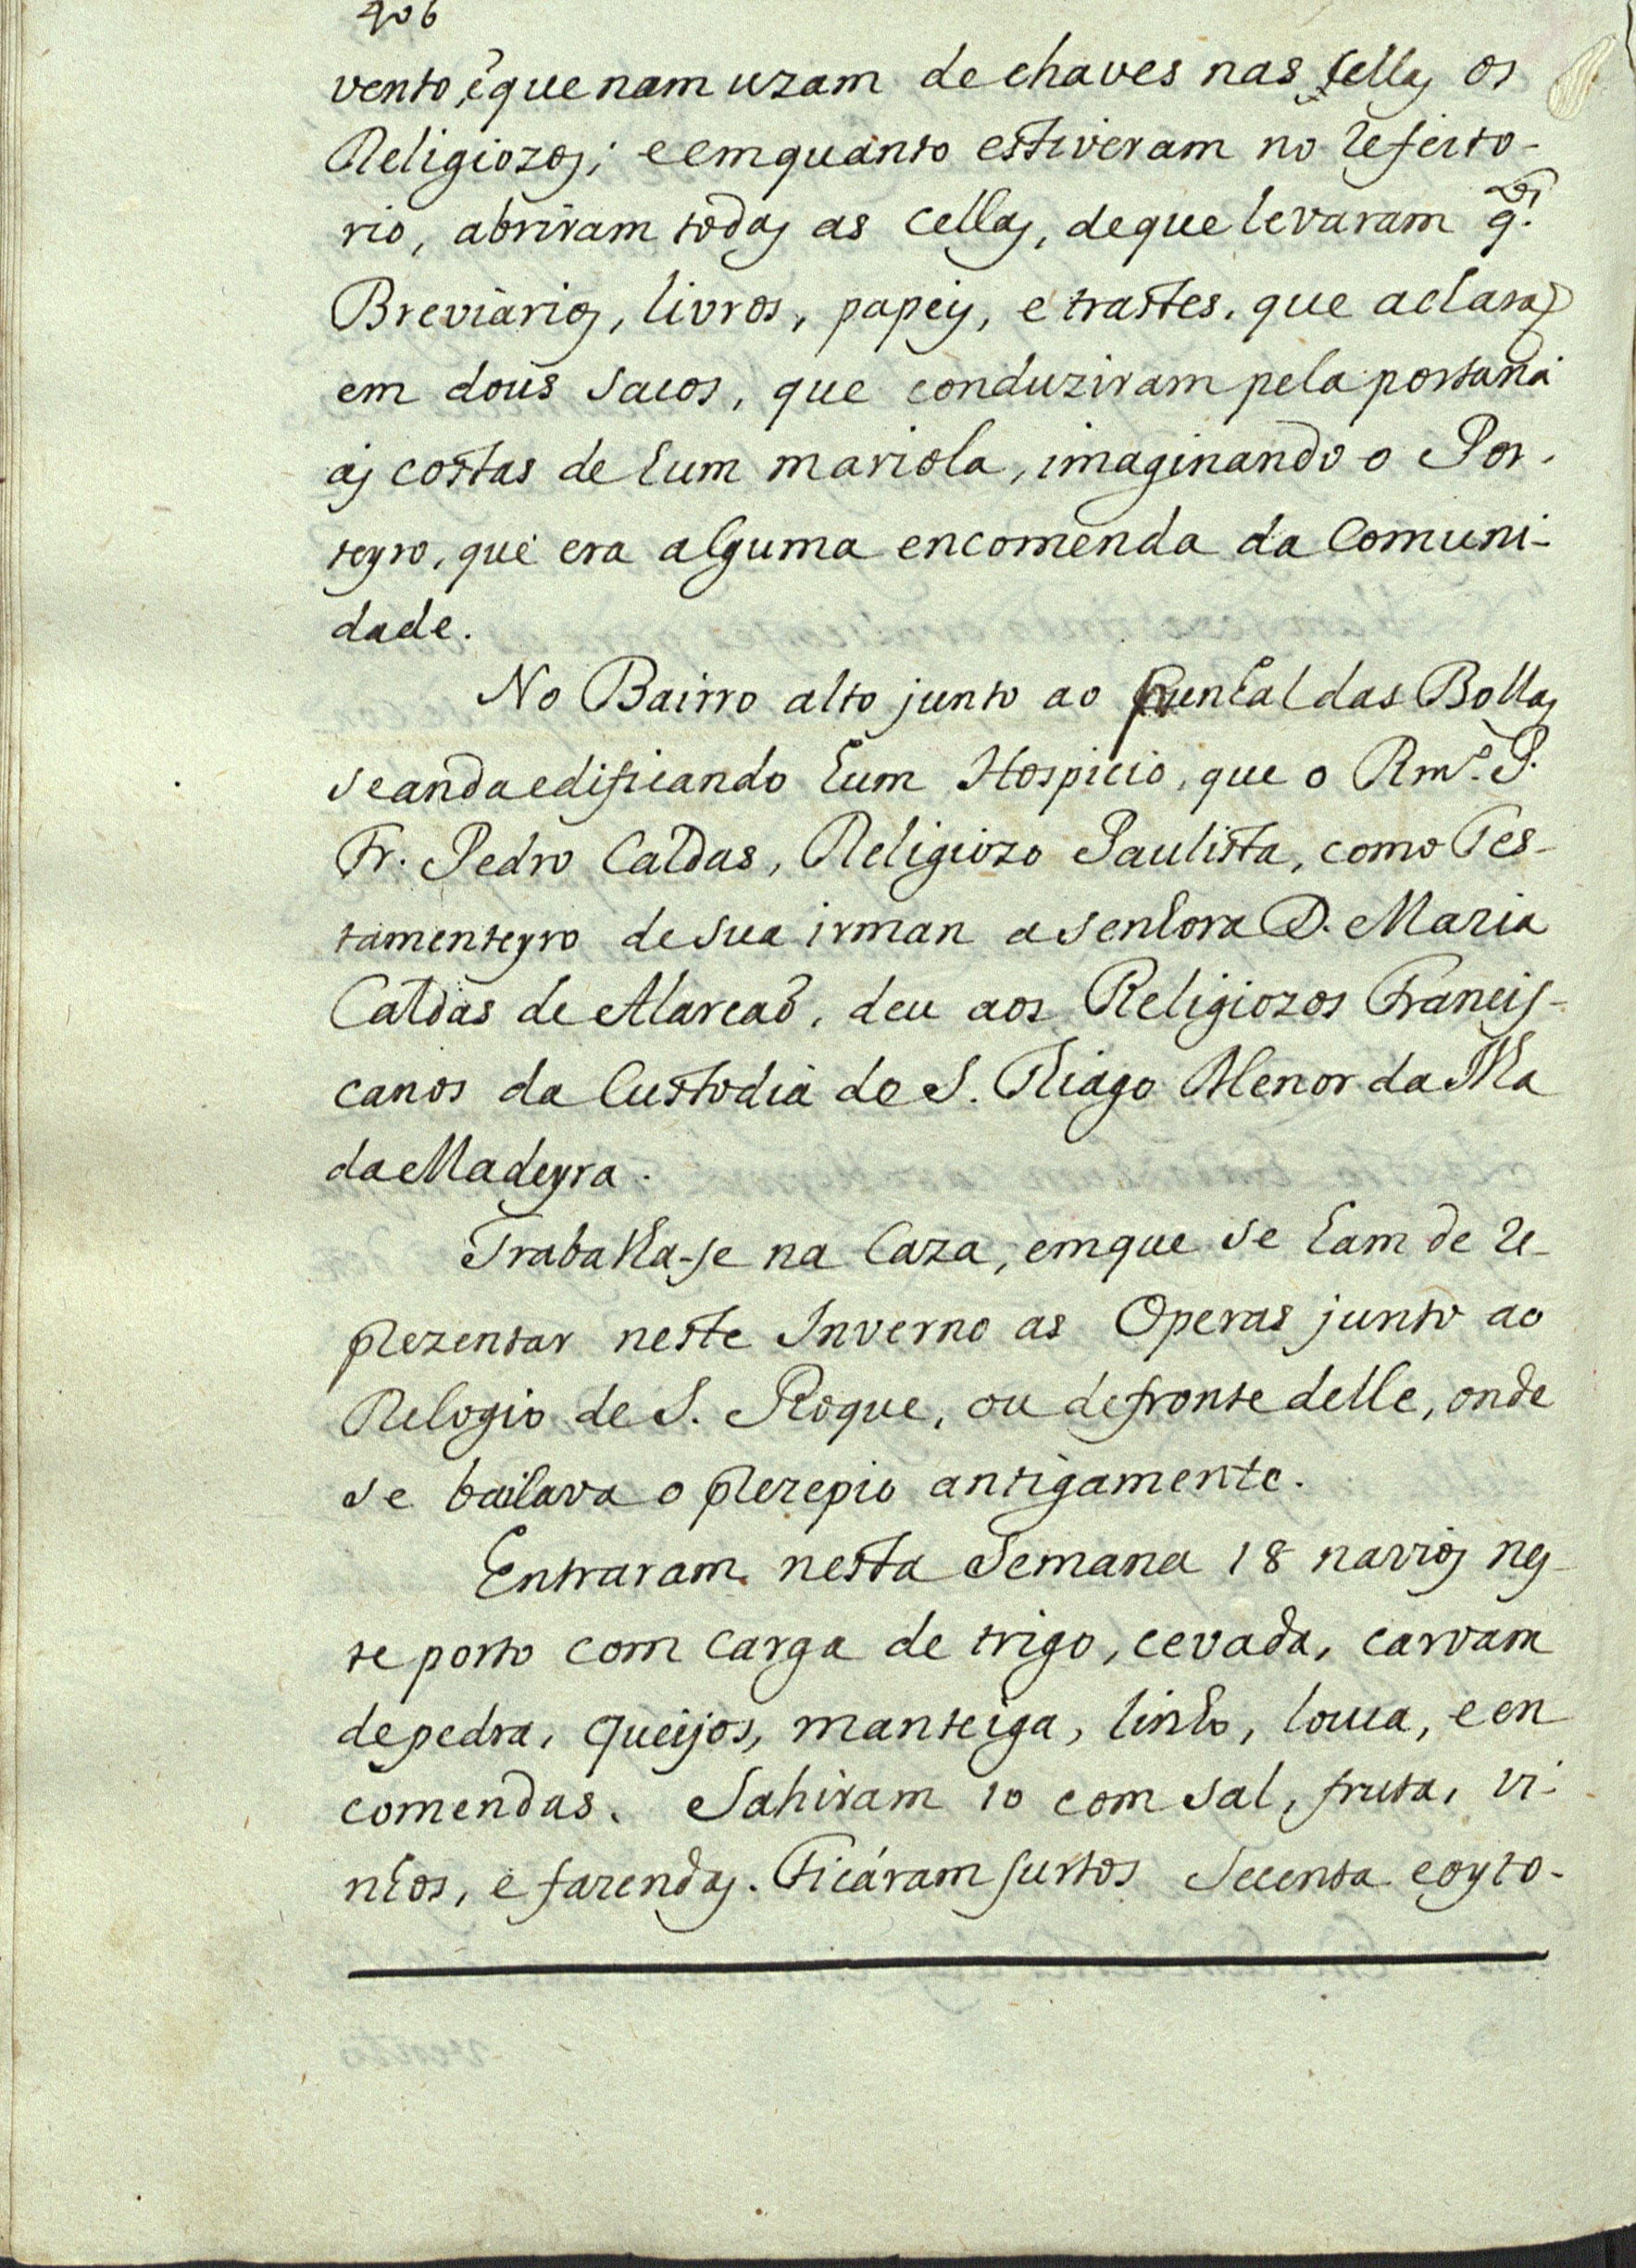 406
vento, e que nam uzam de chaves nas cellas os
Religiozos; e emquanto estiveram no refeito-
rio, abriram todas as cellas, de que levaram
Breviarios, livros, papeis, e trastes, que acharaõ
em dous sacos, que conduziram pela portaria
ás costas de hum mariola, imaginando o Por-
teyro, que era alguma encomenda da Comuni-
dade.
No Bairro alto junto ao cunhal das Bollas
se anda edificando hum Hospicio, que o Rmº. P.
Fr. Pedro Caldas, Religiozo Paulista, como Tes-
tamenteyro de sua irman a senhora D. Maria
Caldas de Alarcaõ, deu aos Religiozos Francis-
canos da Custodia de S. Thiago Menor da Ilha
da Madeyra.
Trabalha-se na Caza, em que se ham de re-
prezentar neste Inverno as Operas junto ao
Relogio de S. Roque, ou defronte delle, onde
se bailava o prezepio antigamente.
Entraram nesta Semana 18 navios nes-
te porto com carga de trigo, cevada, carvam
de pedra, queijos, manteiga, linho, louca, e en
comendas. Sahiram 10 com sal, fruta, vi-
nhos, e fazendas. Ficáram surtos secenta e oyto.